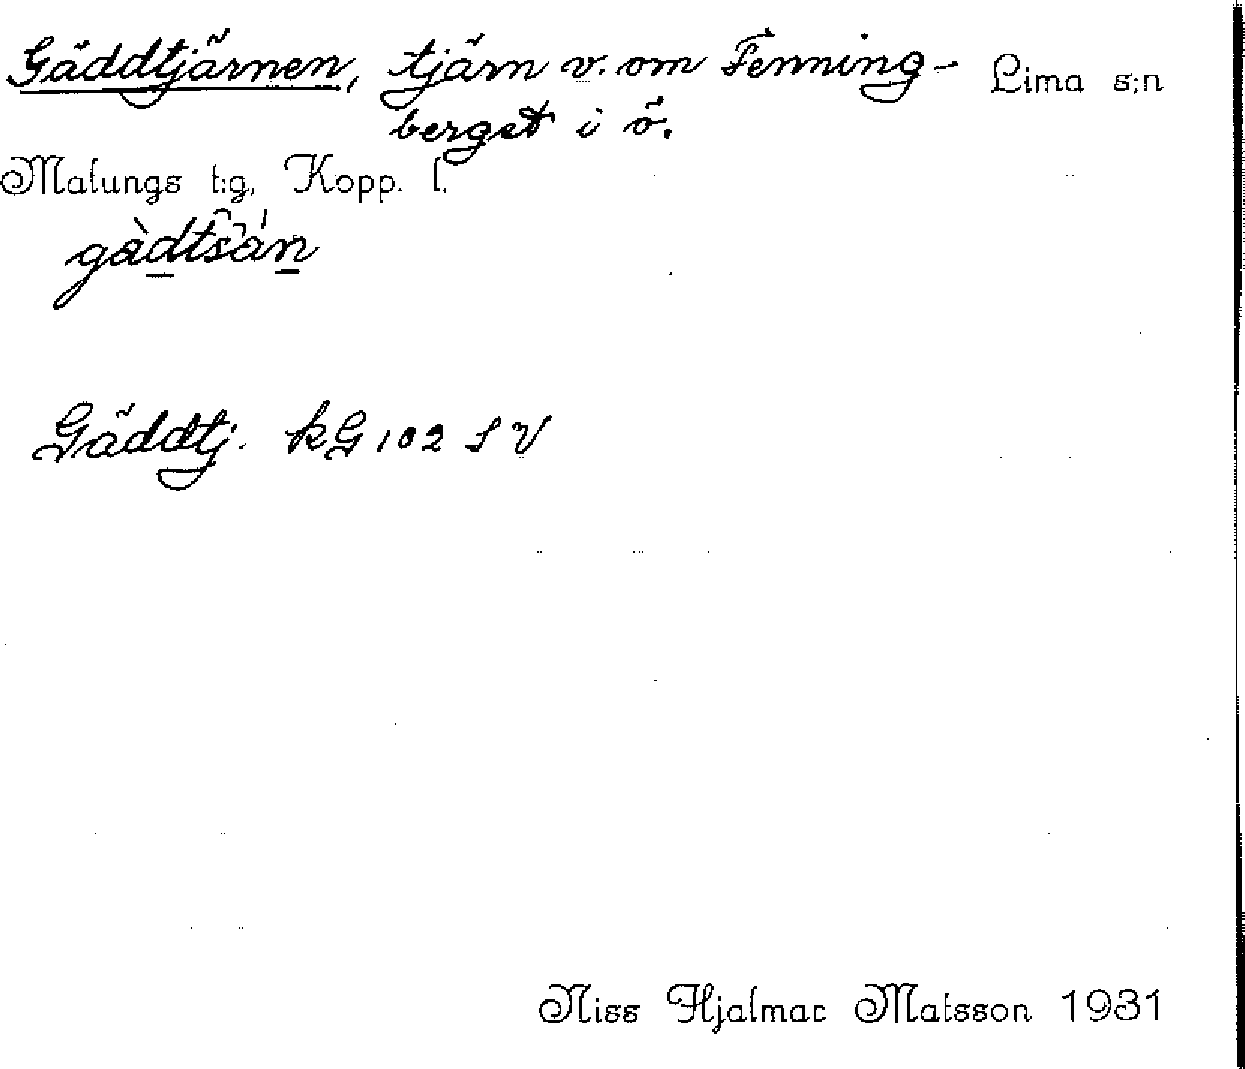 Gäddtjärnen, tjärn v. om Fenning- Lima s:n
berget i ö.
Malungs t:g, Kopp. l.
Gäddtj. kG 102 SV
Niss Hjalmar Matsson 1931